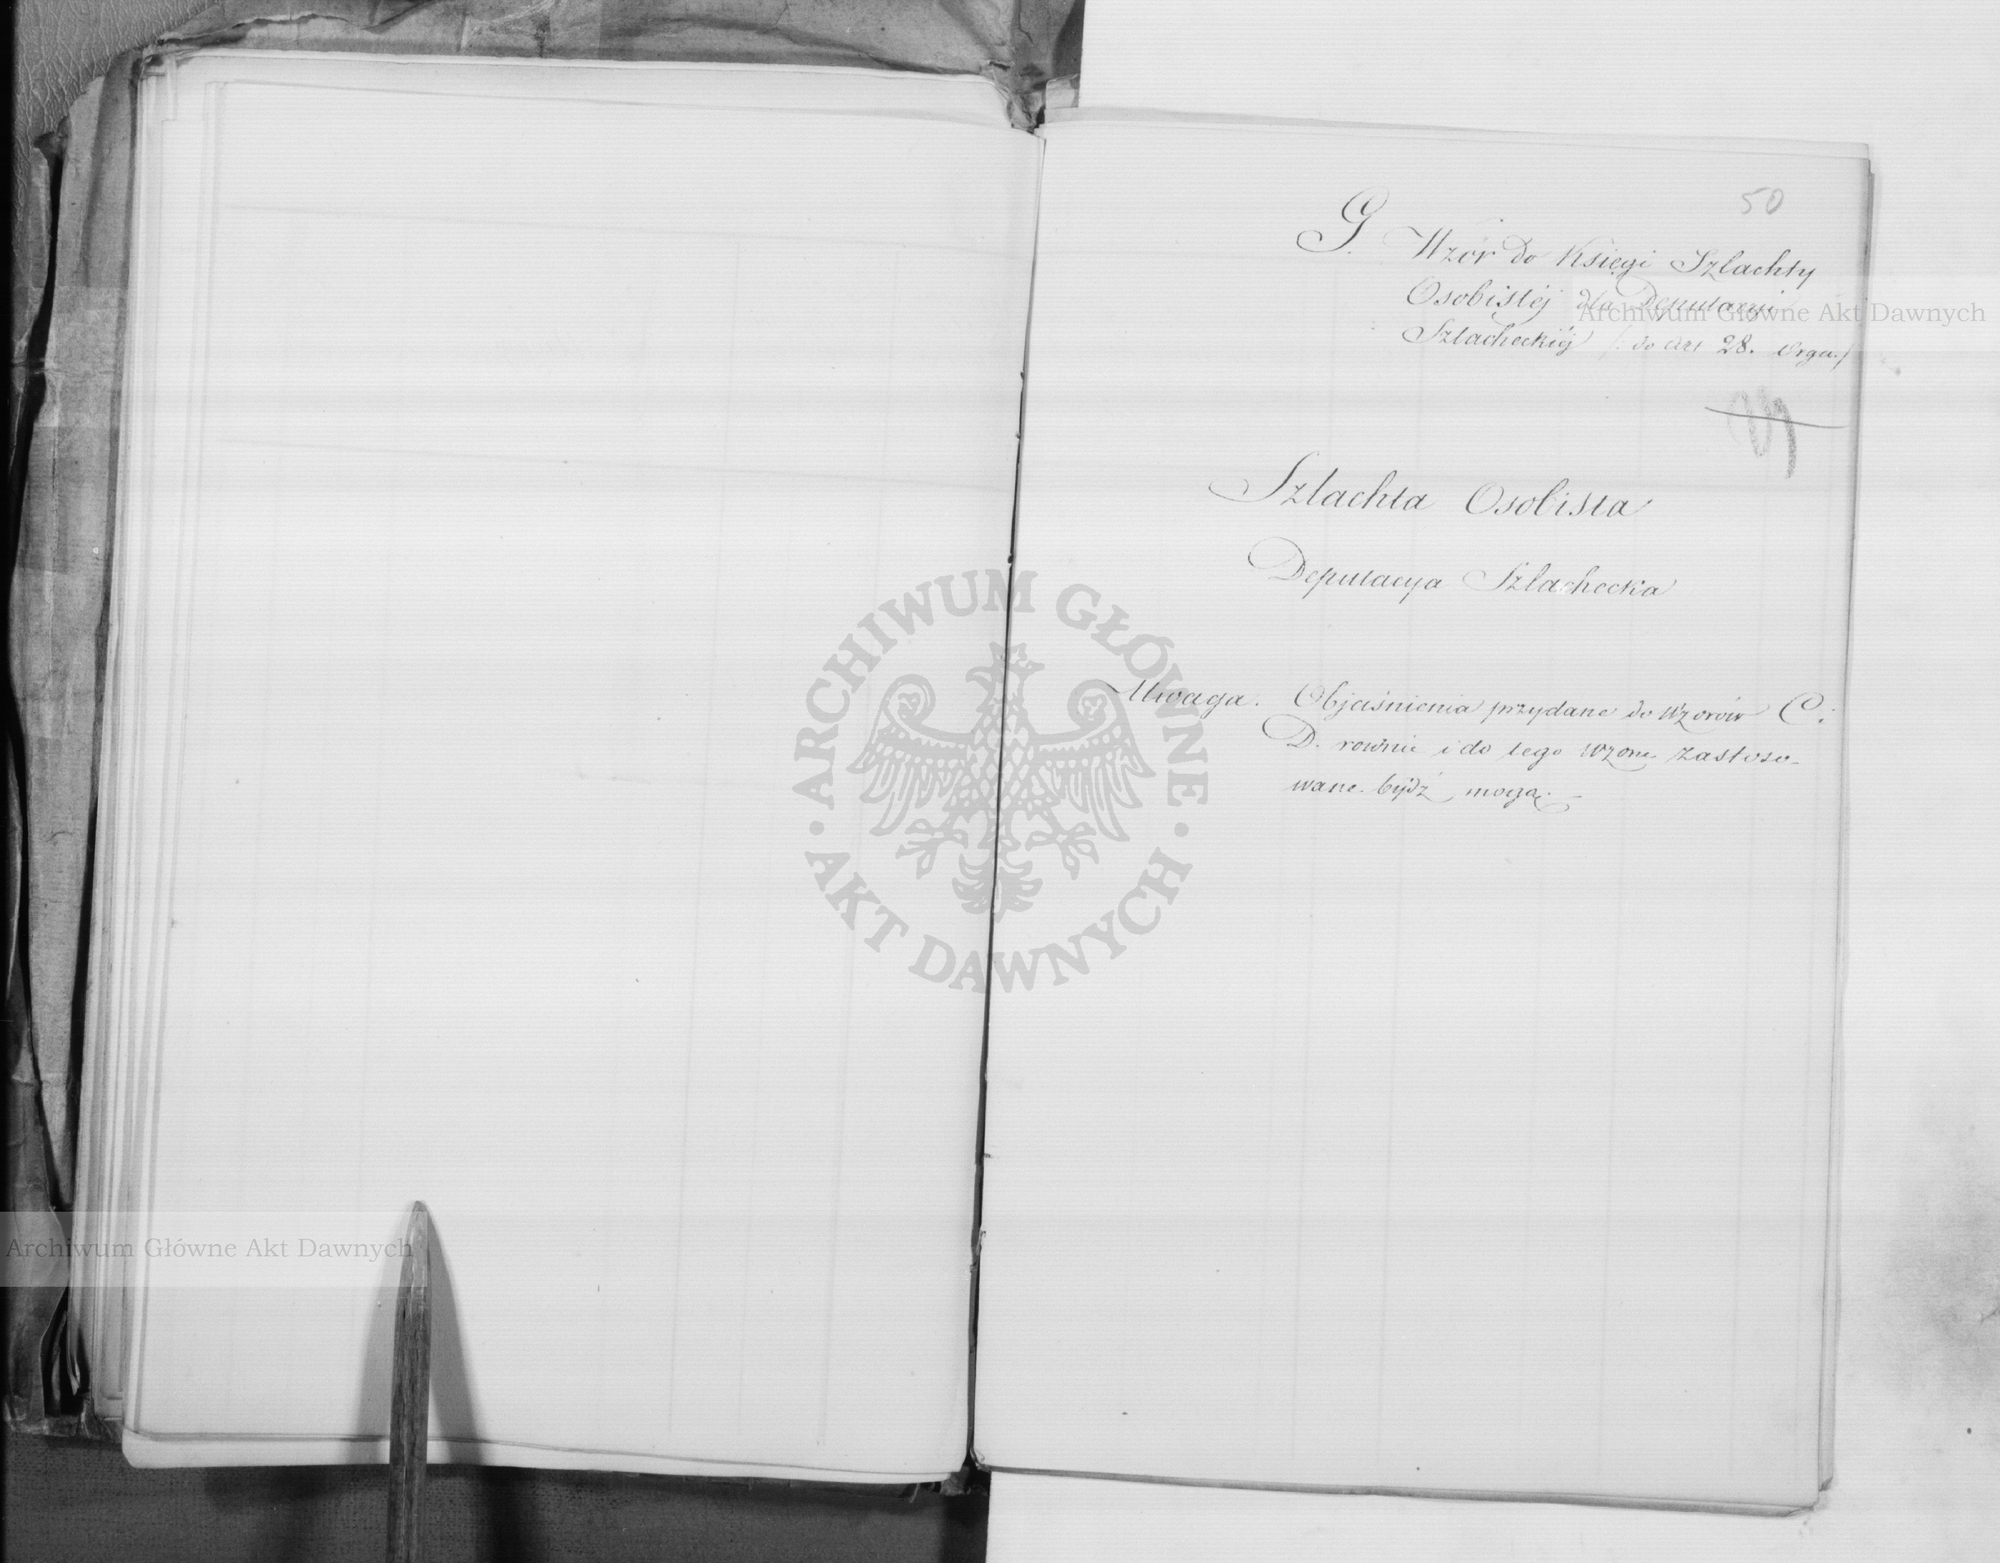 50
G. Wzór do Księgi Szlachty
Osobistéj dla Deputacyi
Szlacheckiéj /: do Art 28. Orga./
Szlachta Osobista
Deputacya Szlachecka
Uwaga. Objaśnienia przydane do Wzorów C i
D. rownie i do tego wzoru zastoso-
wane bydź mogą. –
Archiwum Główne Akt Dawnych
ARCHIWUM GŁÓWNE
· AKT DAWNYCH ·
Archiwum Główne Akt Dawnych